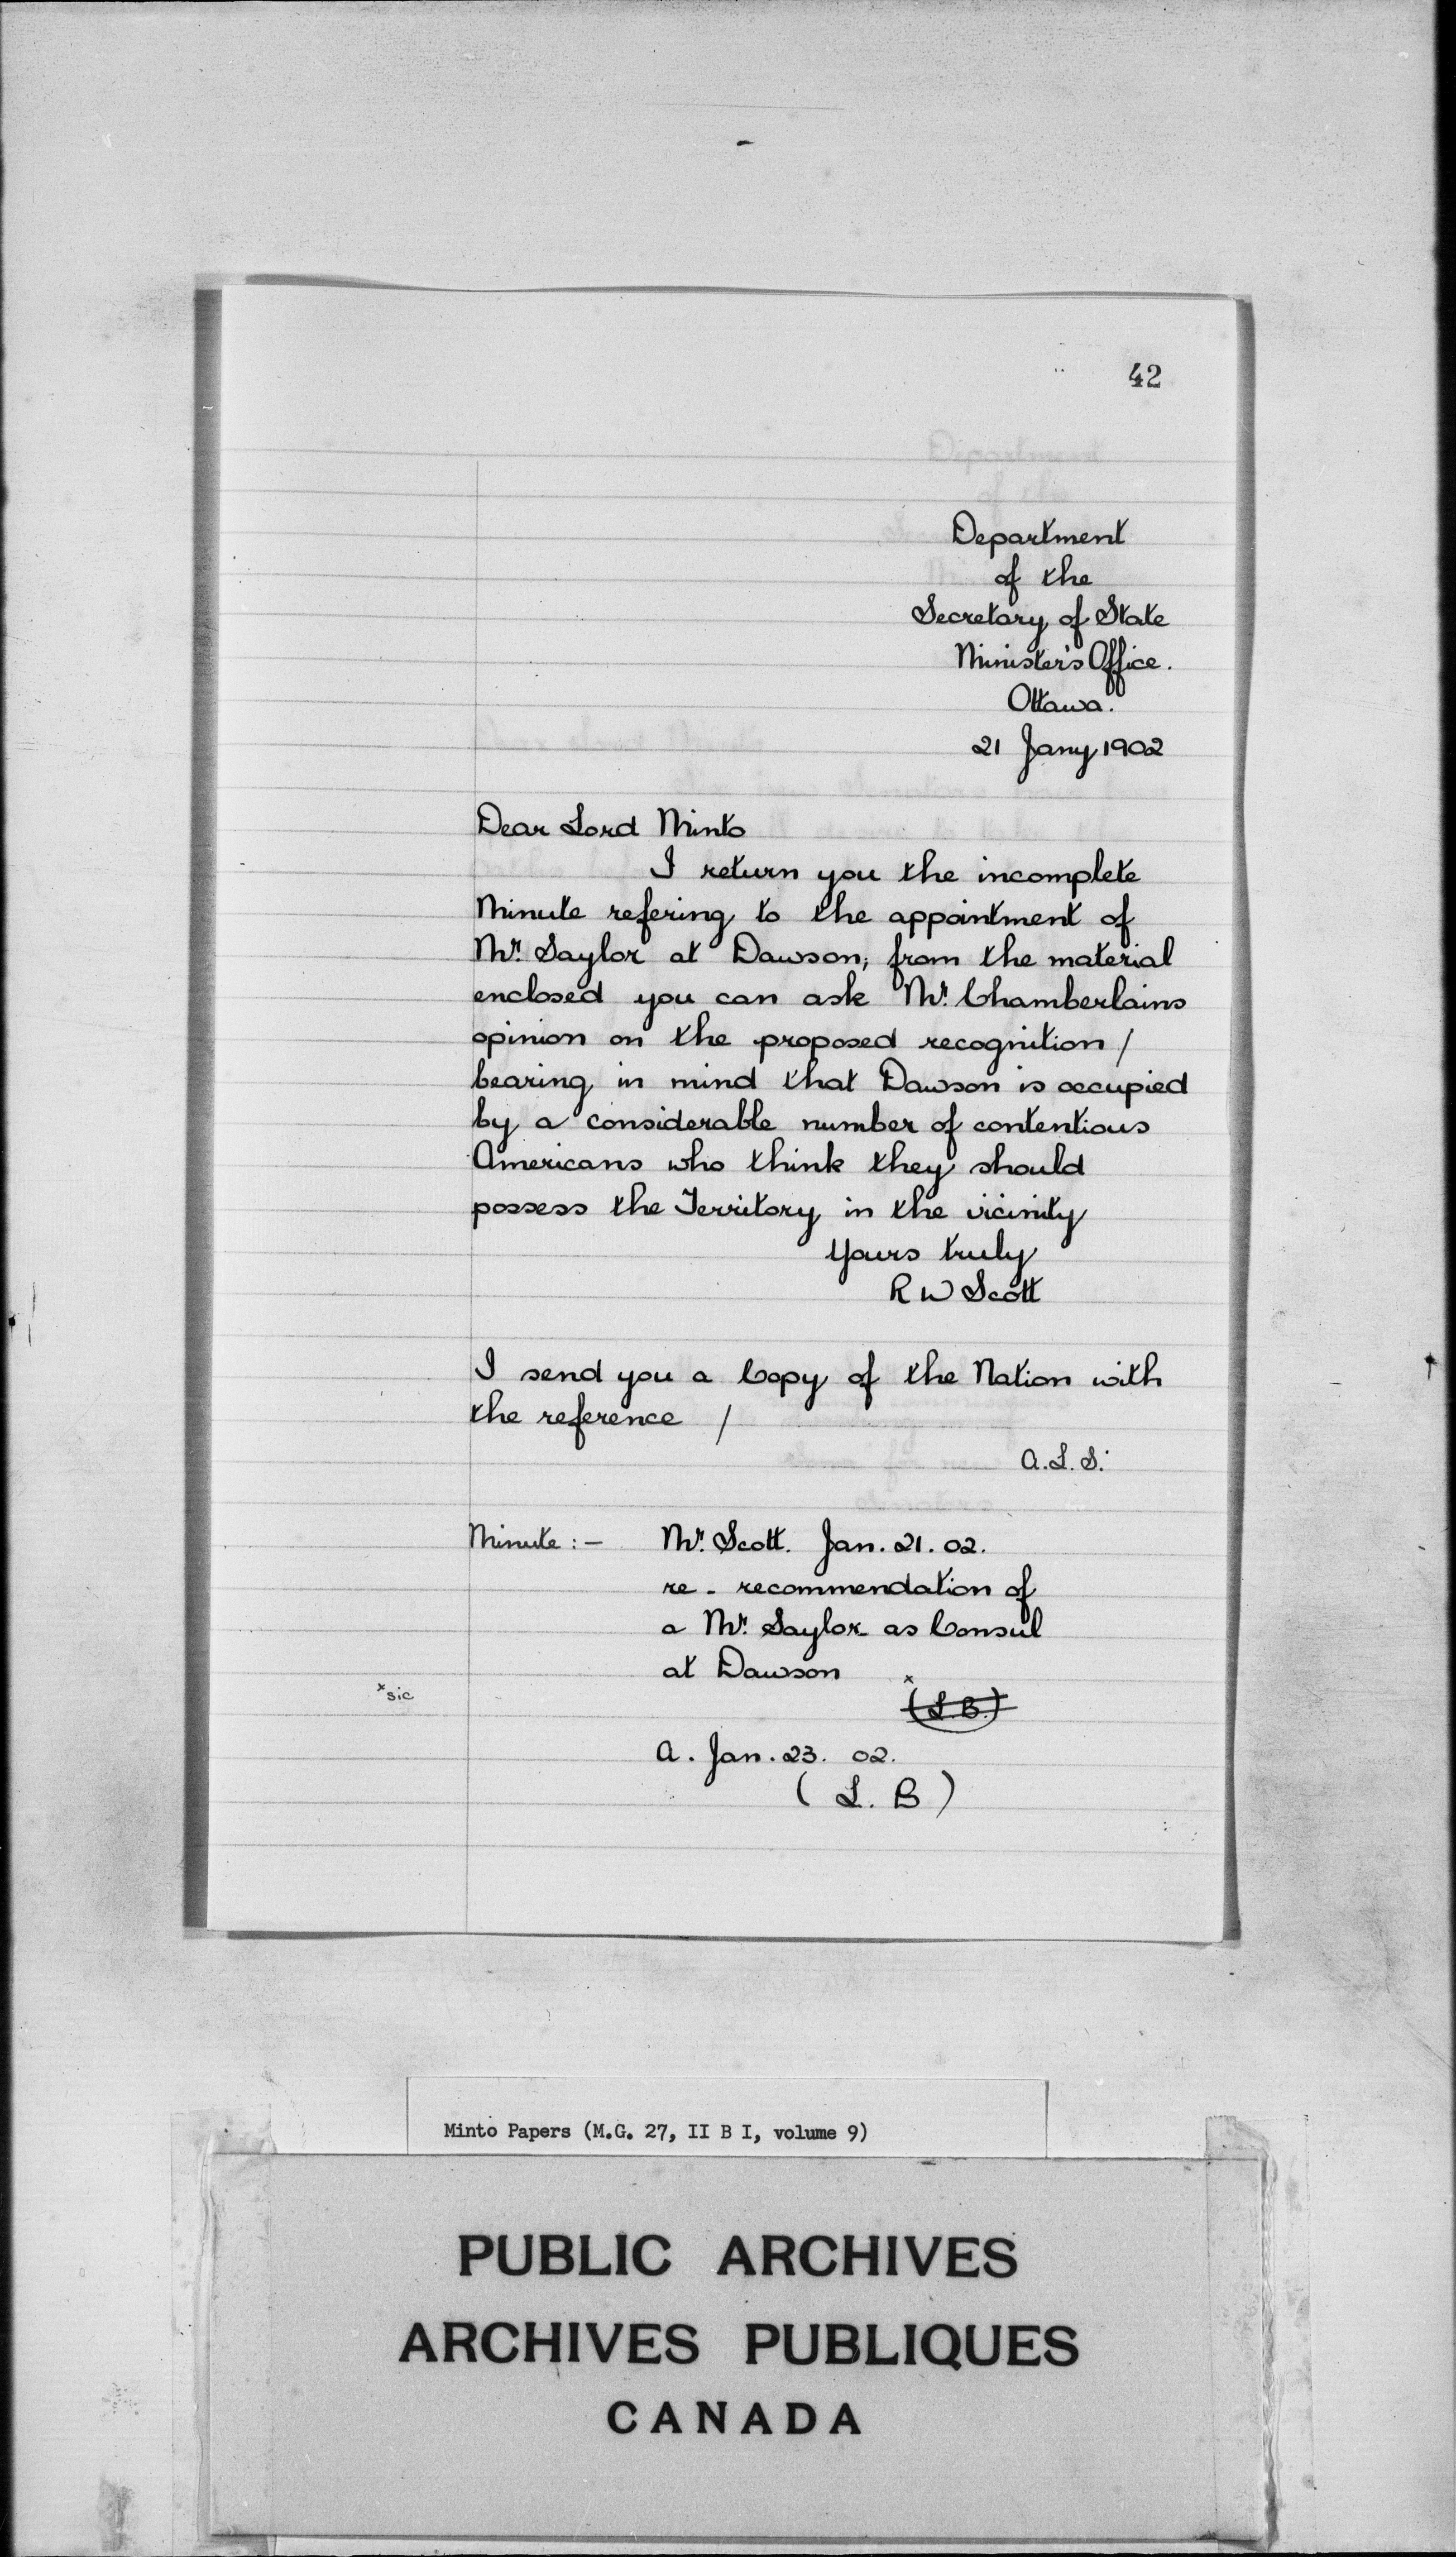 42
Department
of the
Secretary of State
Minister's Office.
Ottawa.
21 Jany 1902
Dear Lord Minto
I return you the incomplete
Minute refering to the appointment of
Mr. Saylor at Dawson; from the material
enclosed you can ask Mr. Chamberlains
opinion on the proposed recognition /
bearing in mind that Dawson is occupied
by a considerable number of contentious
Americans who think they should
possess the Territory in the vicinity
Yours truly
R W Scott
I send you a Copy of the Nation with
the reference /
A.L.S.
Minute :- Mr. Scott. Jan. 21. 02.
re - recommendation of
a Mr. Saylor as Consul
at Dawson
x sic
x (L.B.)
A. Jan. 23. 02.
(L. B)
Minto Papers (M.G. 27, II B I, volume 9)
PUBLIC ARCHIVES
ARCHIVES PUBLIQUES
CANADA